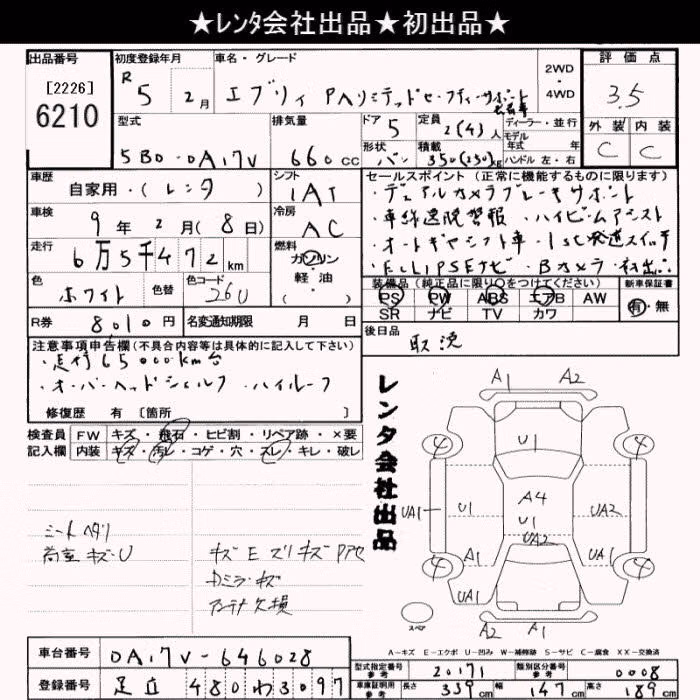 ★レンタ会社出品★初出品★
出品番号 初度登録年月 車名・グレード 評価点
[2226] 6210
R 5年 2月
エブリィ PAリミテッドセーフティーサポート
2WD・4WD
3.5
型式 排気量 ドア 定員 ディーラー・並行 外装 内装
5BD-DA17V 660cc 5 2(4)人 モデル年式 年 C C
形状 積載 ハンドル 左・右
バン 350(250)kg
車歴 シフト セールスポイント (正常に機能するものに限ります)
自家用・(レンタ) IAT ・デュアルカメラブレーキサポート
車検 冷房 ・車線逸脱警報 ・ハイビームアシスト
9年 2月(8日) AC ・オートギヤシフト車・ISC発進スイッチ
走行 燃料 ・ECLIPSEナビ ・Bカメラ・初出品
6万5千472km ガソリン・軽油
色 色替 色コード 装備品 (純正品に限り○をつけてください) 新車保証書
ホワイト 26U PS PW ABS エアB AW 有・無
SR ナビ TV カワ
R券 8010円 名変通知期限 月 日 後日品
取説
注意事項申告欄 (不具合内容等は具体的に記入して下さい)
・走行65000km台
・オーバーヘッドシェルフ ・ハイルーフ
修復歴 有 [箇所 ]
検査員 FW キズ・飛石・ヒビ割・リペア跡・×要
記入欄 内装 キズ・汚レ・コゲ・穴・スレ・キレ・破レ
シートヘタリ
荷室キズ・U
キズE ズリキズPアセ
Dミラーキズ
アンテナ欠損
レンタ会社出品
A1 A2
4 U1 4
A4
UA1 U1 U1 UA2 UA2
A1 UA1
4 4
UA1
スペア
A2 A1
A-キズ E-エクボ U-凹み W-補修跡 S-サビ C-腐食 XX-交換済
車台番号 DA17V-646028
登録番号 足立 480わ3097
型式指定番号 参考 20171 類別区分番号 参考 0008
車庫証明用 参考 長さ 339cm 幅 147cm 高さ 189cm